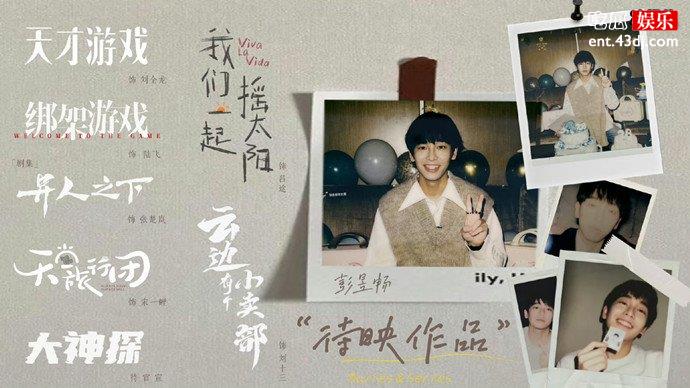 娱乐
ent.43dl.com
天才游戏
饰 刘全龙
绑架游戏
WELCOME TO THE GAME
饰 陆飞
「剧集」
异人之下
饰 张楚岚
天龄旅行团
饰 宋一鲤
大神探
待官宣
我们一起
摇太阳
Viva
La
Vida
饰 吕途
云边有个
小卖部
饰 刘十三
彭昱畅
ily,
"待映作品"